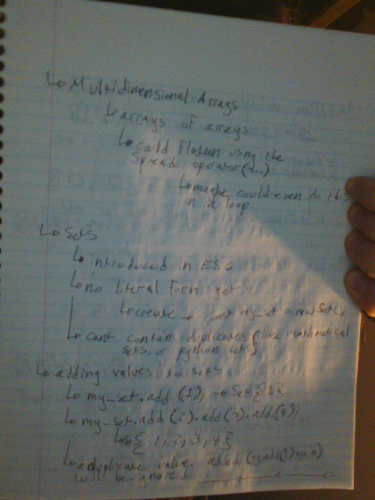 ↳ Multidimensional Arrays
↳ arrays of arrays
↳ could flatten using the
spread operator (...)
↳ maybe could even do this
in a loop
↳ Sets
↳ introduced in ES6
↳ no literal form yet
↳ create → const my_set = new Set();
↳ cant contain duplicates (like mathematical
sets, or python sets)
↳ adding values to sets
↳ my_set.add(1); → Set {1}
↳ my_set.add(2).add(3).add(4);
↳ {1, 2, 3, 4}
↳ a duplicate value added
will be ignored